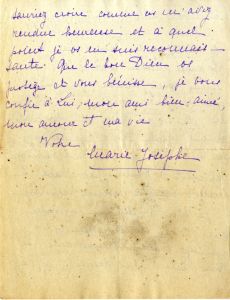 sauriez croire comme vs m'avez
rendue heureuse et à quel
point je vs en suis reconnais-
sante. Que le bon Dieu vs
protège et vous bénisse, je vous
confie à Lui, mon ami bien-aimé
mon amour et ma vie
Votre
Marie-Josèphe